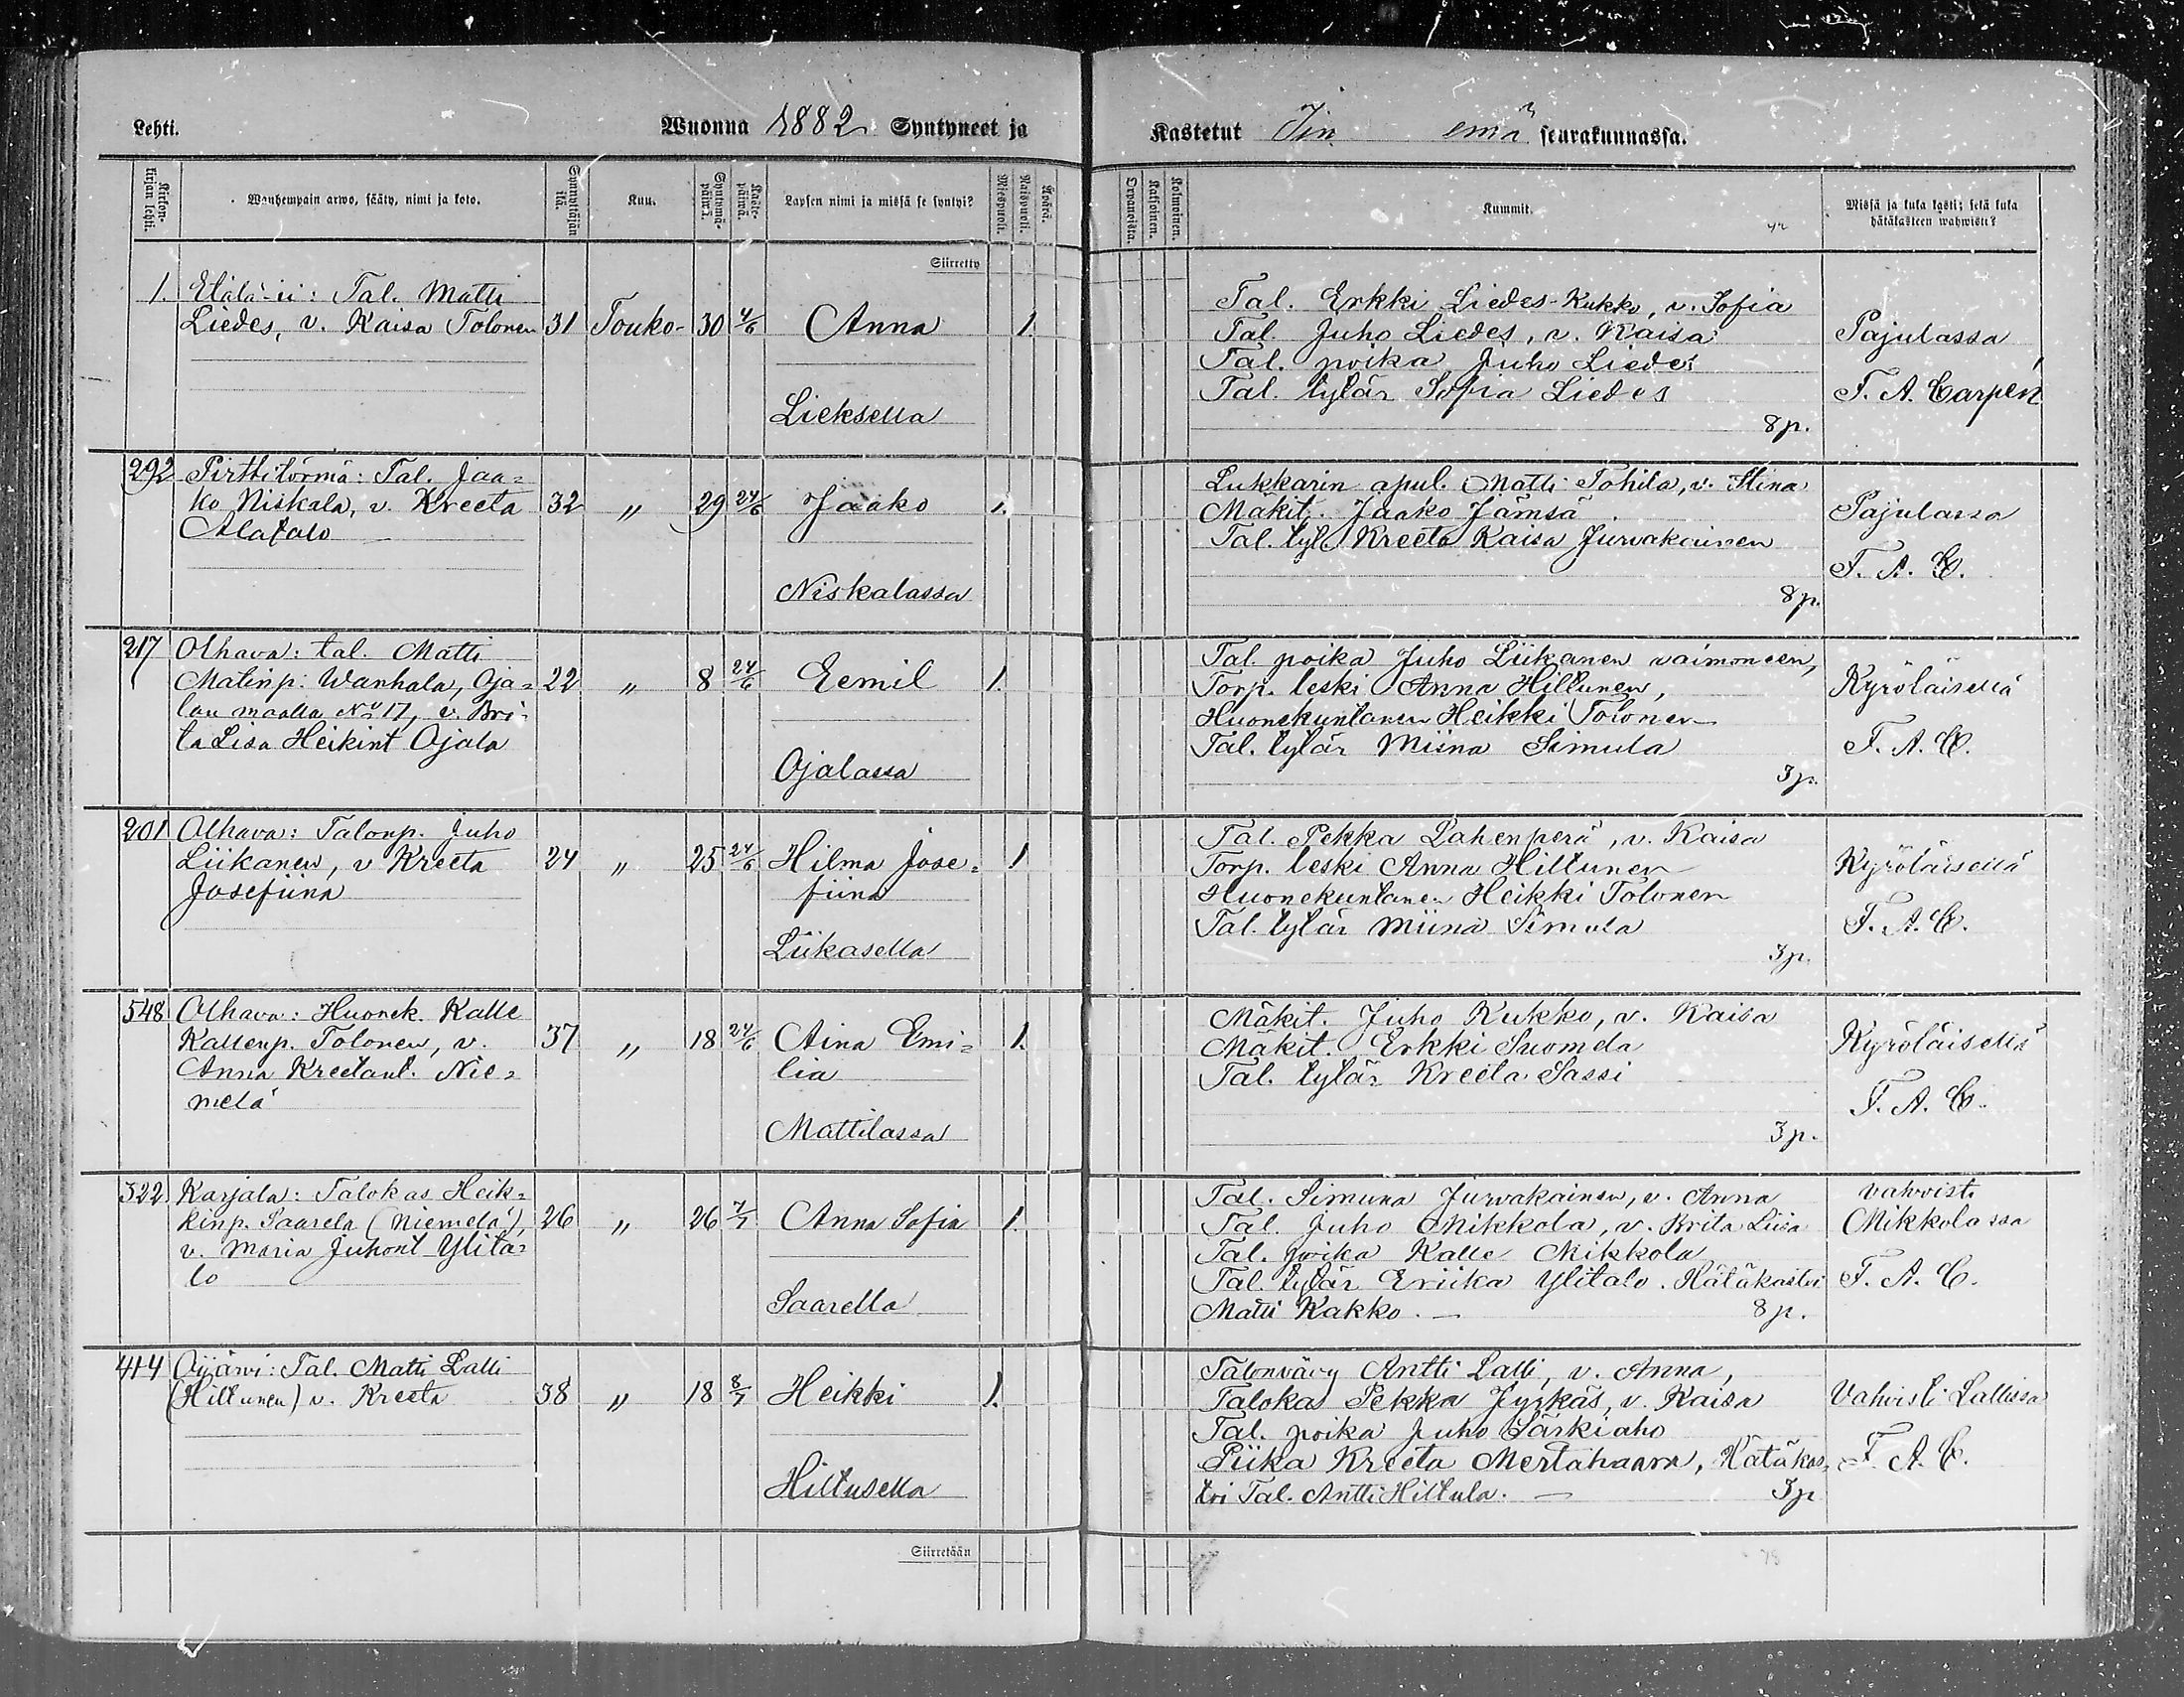 Lehti.
Wuonna 1882 Syntyneet ja
Kastetut Iin emä seurakunnassa.
Kirkon-kirjan lehti.
Wanhempain arwo, sääty, nimi ja koto.
Synnyttäjän ikä.
Kuu.
Syntymä-päiwä.
Kaste-päiwä.
Lapsen nimi ja missä se syntyi?
Miespuoli.
Waispuoli.
Kummit.
Missä ja kuka kasti; sekä kuka
hätäkasteen wahwisti?
Siirretty
1. Etälä-ii: Tal. Matti
Liedes, v. Kaisa Tolonen 31 Touko- 30 4/6 Anna 1.
Lieksella
Tal. Erkki Liedes-Kukko, v. Sofia
Tal. Juho Liedes, v. Kaisa
Tal. poika Juho Liedes
Tal. tytär Sofia Liedes
8 p.
Pajulassa
F. A. Carpén
292 Pirttitörmä: Tal. Jaa=
ko Niskala, v. Kreeta 32 " 29 24/6 Jaako 1.
Alatalo
Niskalassa
Lukkarin apul. Matti Tohila, v. Stina
Mäkit. Jaako Jämsä
Tal. tyt. Kreeta Kaisa Jurvakainen
8 p.
Pajulassa
F. A. C.
217 Olhava: tal. Matti
Matinp. Wanhala, Oja= 22 " 8 24/6 Eemil 1.
lan maalla No 17, v. Bri-
ta Lisa Heikint Ojala
Ojalassa
Tal. poika Juho Liikanen vaimoneen,
Torp. leski Anna Hiltunen,
Huonekuntanen Heikki Tolonen
Tal. tytär Miina Simula
3 p.
Kyröläisellä
F. A. C.
201 Olhava: Talonp. Juho
Liikanen, v Kreeta 24 " 25 24/6 Hilma Jose= 1
Josefiina fiina
Liikasella
Tal. Pekka Lahenperä, v. Kaisa
Torp. leski Anna Hiltunen
Huonekuntanen Heikki Tolonen
Tal. tytär Miina Simula
3 p.
Kyröläisellä
F. A. C.
548 Olhava: Huonek. Kalle
Kallenp. Tolonen, v. 37 " 18 24/6 Aina Emi= 1.
Anna Kreetant. Nie= lia
melä
Mattilassa
Mäkit. Juho Kukko, v. Kaisa
Mäkit. Erkki Suomela
Tal. tytär Kreeta Sassi
3 p.
Kyröläisellä
F. A. C.
322 Karjala: Talokas Heik=
kinp. Saarela (Niemelä), 26 " 26 7/7 Anna Sofia 1.
v. Maria Juhont Ylita=
lo
Saarella
Tal. Simuna Jurvakainen, v. Anna
Tal. Juho Mikkola, v. Brita Liisa
Tal. poika Kalle Mikkola
Tal. tytär Eriika Ylitalo. Hätäkastoi
Matti Kakko. — 8 p.
vahvisti
Mikkolassa
F. A. C.
414 Oijärvi: Tal. Matti Lalli
(Hiltunen) v. Kreeta 38 " 18 8/7 Heikki 1.
Hiltusella
Talonväry Antti Lalli, v. Anna,
Talokas Pekka Jyrkäs, v. Kaisa
Tal. poika Juho Särkiaho
Piika Kreeta Mertahaara, Hätäkas,
toi Tal. Antti Hiltula. — 3 p
Vahvisti Lallissa
F. A. C.
Siirretään